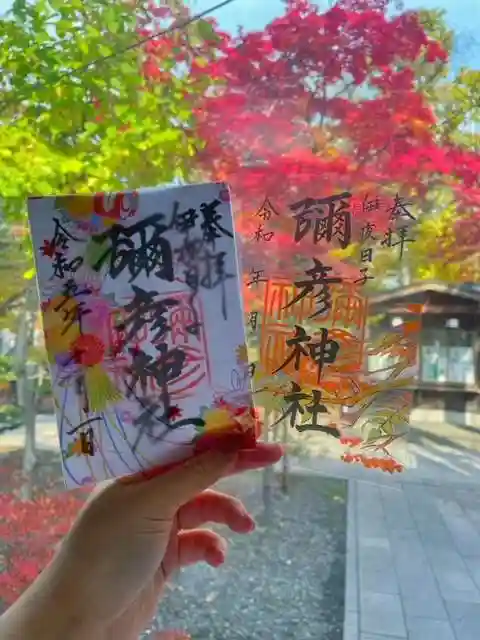 奉拝
伊夜日子
彌彦神社
令和五年十一月一日
奉拝
伊夜日子
彌彦神社
令和 年 月 日